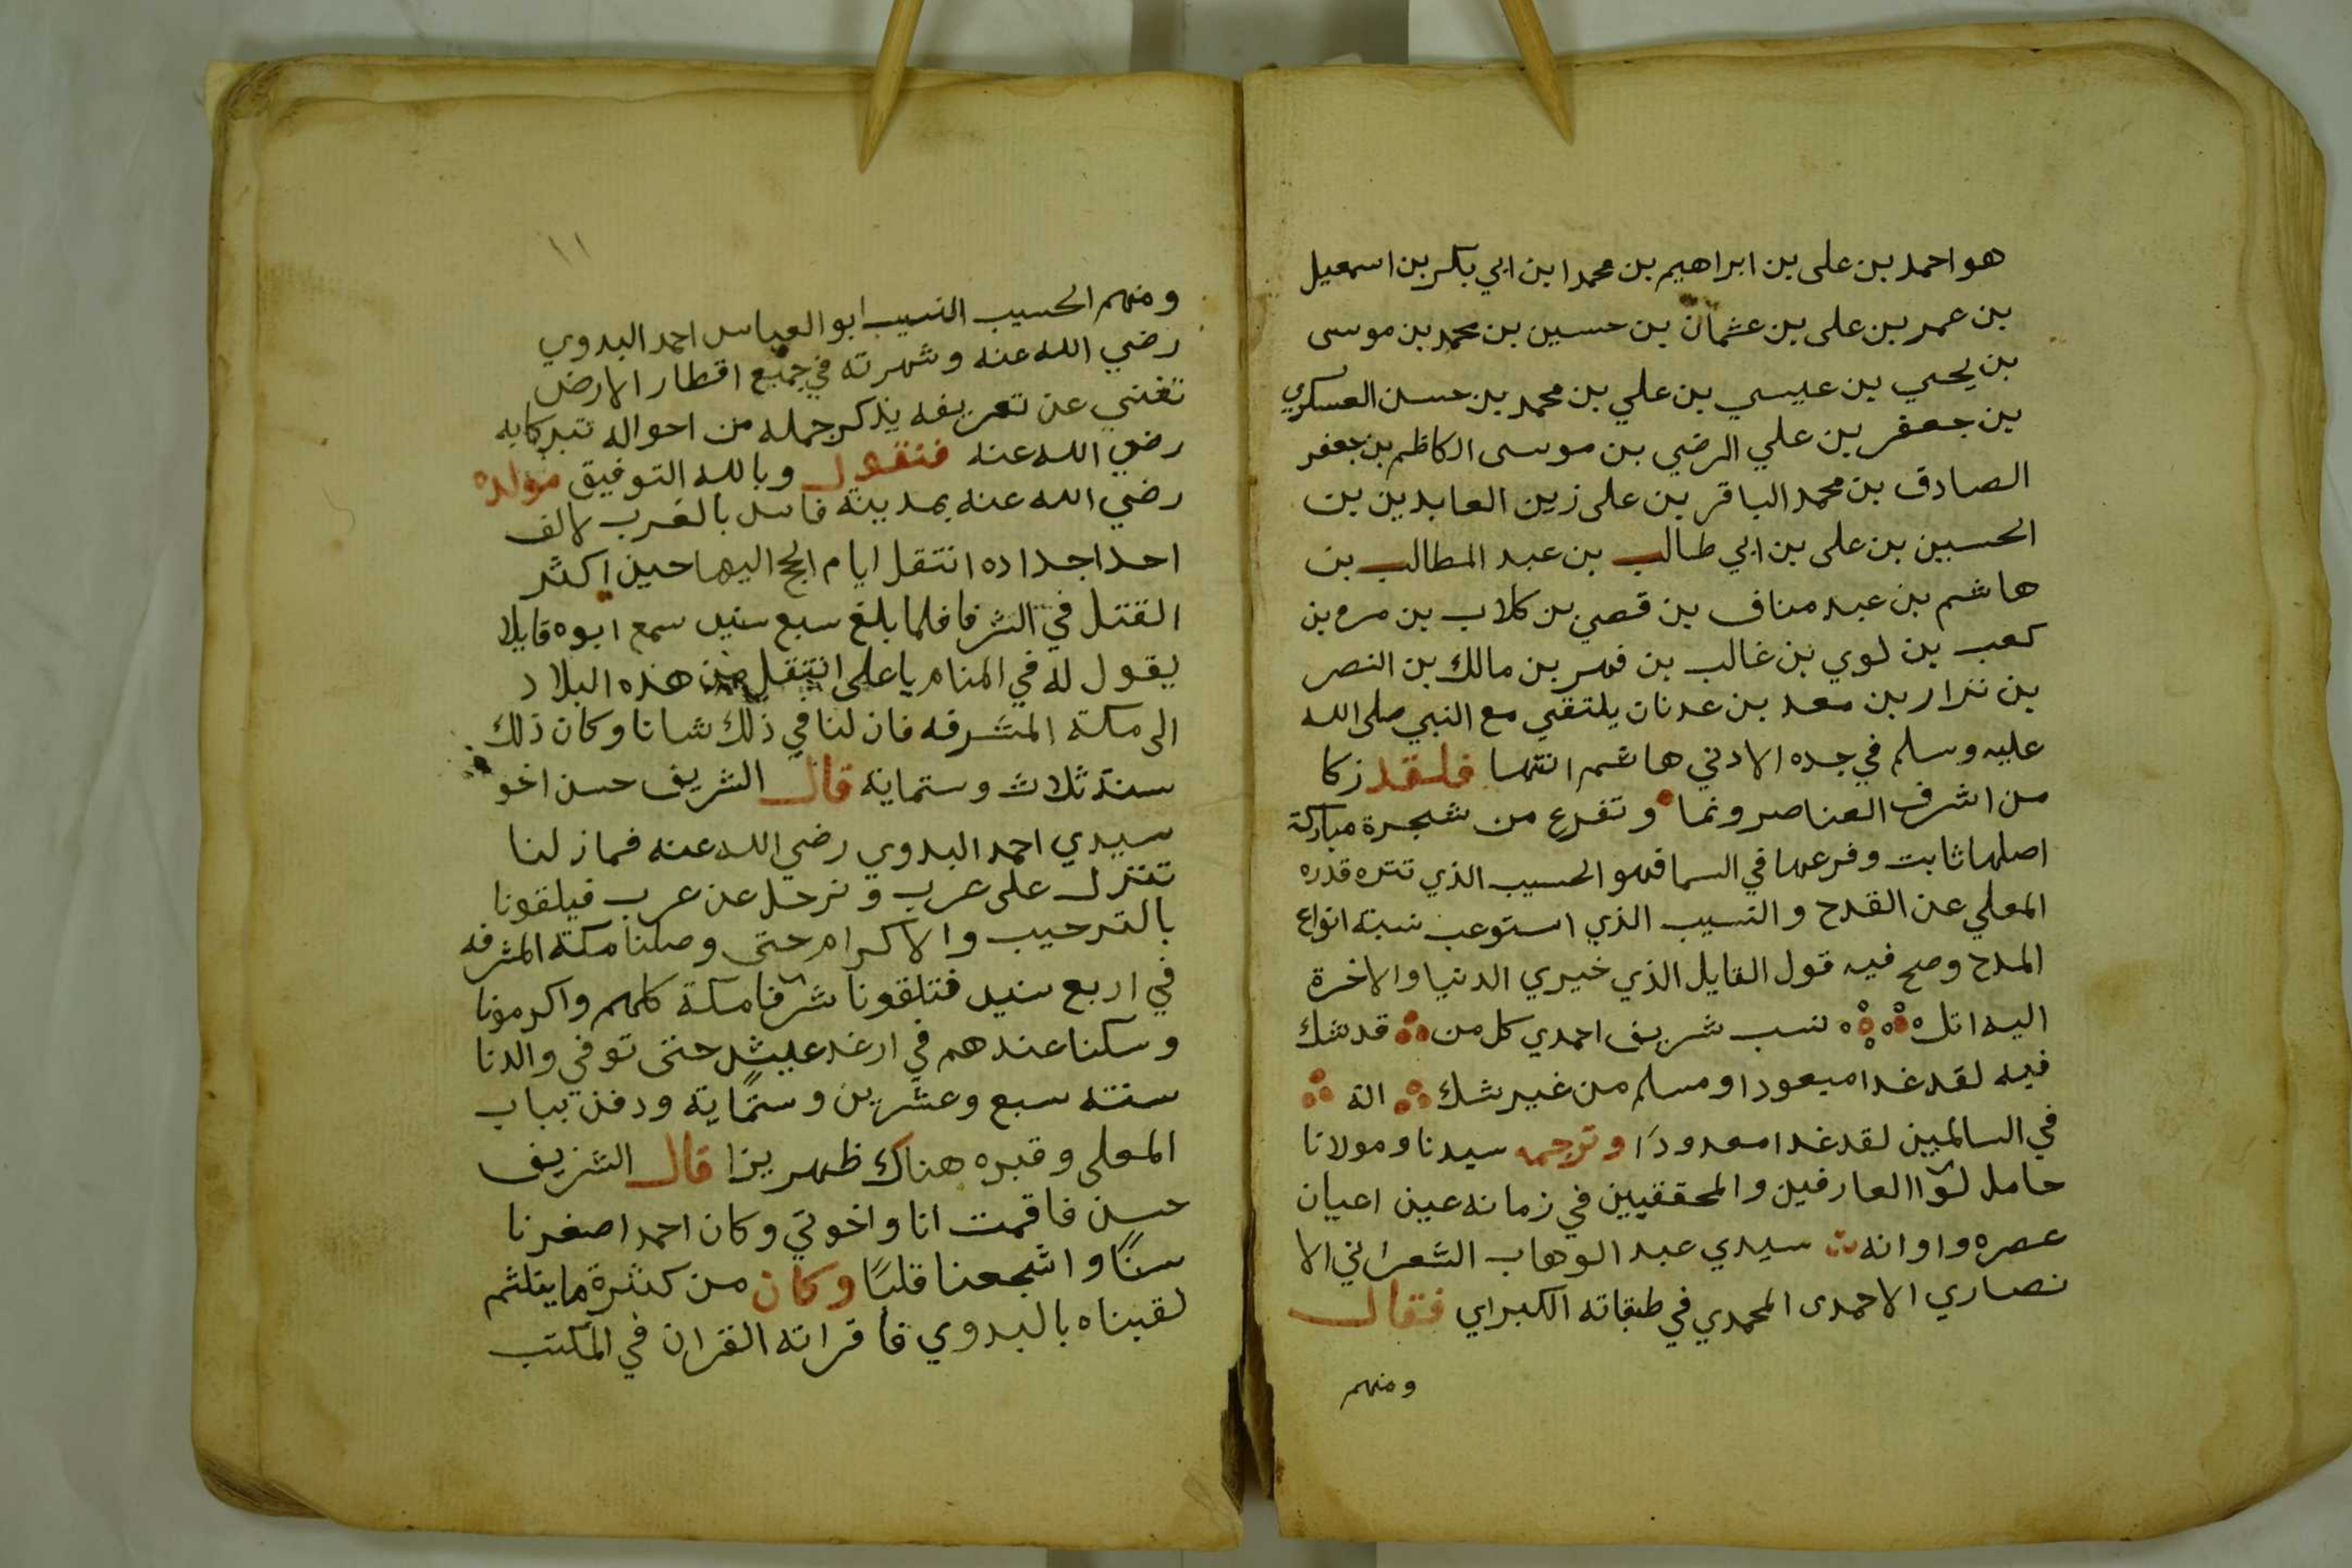 هو احمد بن على بن ابراهيم بن محمد ابن ابي بكر بن اسمعيل
بن عمر بن على بن عثمان بن حسين بن محمد بن موسى
بن يحيي بن عيسي بن علي بن محمد بن حسن العسكري
بن جعفر بن علي الرضي بن موسى الكاظم بن جعفر
الصادق بن محمد الباقر بن على زين العابدين بن
الحسين بن على بن ابي طالب بن عبد المطالب بن
هاشم بن عبد مناف بن قصي بن كلاب بن مره بن
كعب بن لوي بن غالب بن فهر بن مالك بن النصر
بن نزار بن معد بن عدنان يلتقي مع النبي صلى الله
عليه وسلم في جده الادني هاشم انتها فلقد زكا
من اشرف العناصر ونما وتفرع من شجرة مباركة
اصلها ثابت وفرعها في السما فهو الحسيب الذي تنزه قدره
المعلي عن القدح والنسيب الذي استوعب نسبة انواع
المدح وصح فيه قول القايل الذي خيري الدنيا والاخرة
اليه اتل نسب شريف احمدي كل من قد شك
فيه لقد غدا ميعودا ومسلم من غير شك الة
في السالمين لقد غدا معدودًا وترجمه سيدنا ومولانا
حامل لوآ العارفين والمحققيين في زمانه عين اعيان
عصره واوانه سيدي عبد الوهاب الشعراني الا
نصاري الاحمدى المحمدي في طبقاته الكبراي فقال
ومنهم
١١
ومنهم الحسيب النسيب ابو العباس احمد البدوي
رضي الله عنه وشهرته في جميع اقطار الارض
تغنني عن تعريفه يذكر جمله من احواله تبركا به
رضي الله عنه فنقول وبالله التوفيق مولده
رضي الله عنه بمدينة فاس بالغرب لالف
احد اجداده انتقل ايام الحج اليها حين اكثر
القتل في الشرفا فلما بلغ سبع سنين سمع ابوه قايلا
يقول له في المنام يا على انتقل من هذه البلاد
الى مكة المشرفه فان لنا في ذلك شانا وكان ذلك
سنة ثلاث وستماية قال الشريف حسن اخو
سيدي احمد البدوي رضي الله عنه فماز لنا
تنزل على عرب ونرحل عن عرب فيلقونا
بالترحيب والاكرام حتى وصلنا مكة المشرفه
في اربع سنين فتلقونا شرفا مكة كلهم واكرمونا
وسكنا عندهم في ارغد عيش حتى توفي والدنا
سنته سبع وعشرين وستماية ودفن بباب
المعلى وقبره هناك ظهر يزا قال الشريف
حسن فاقمت انا واخوتي وكان احمد اصغرنا
سنًا واشجعنا قلبًا وكان من كثرة ما يتلثم
لقبناه بالبدوي فاقراته القران في المكتب